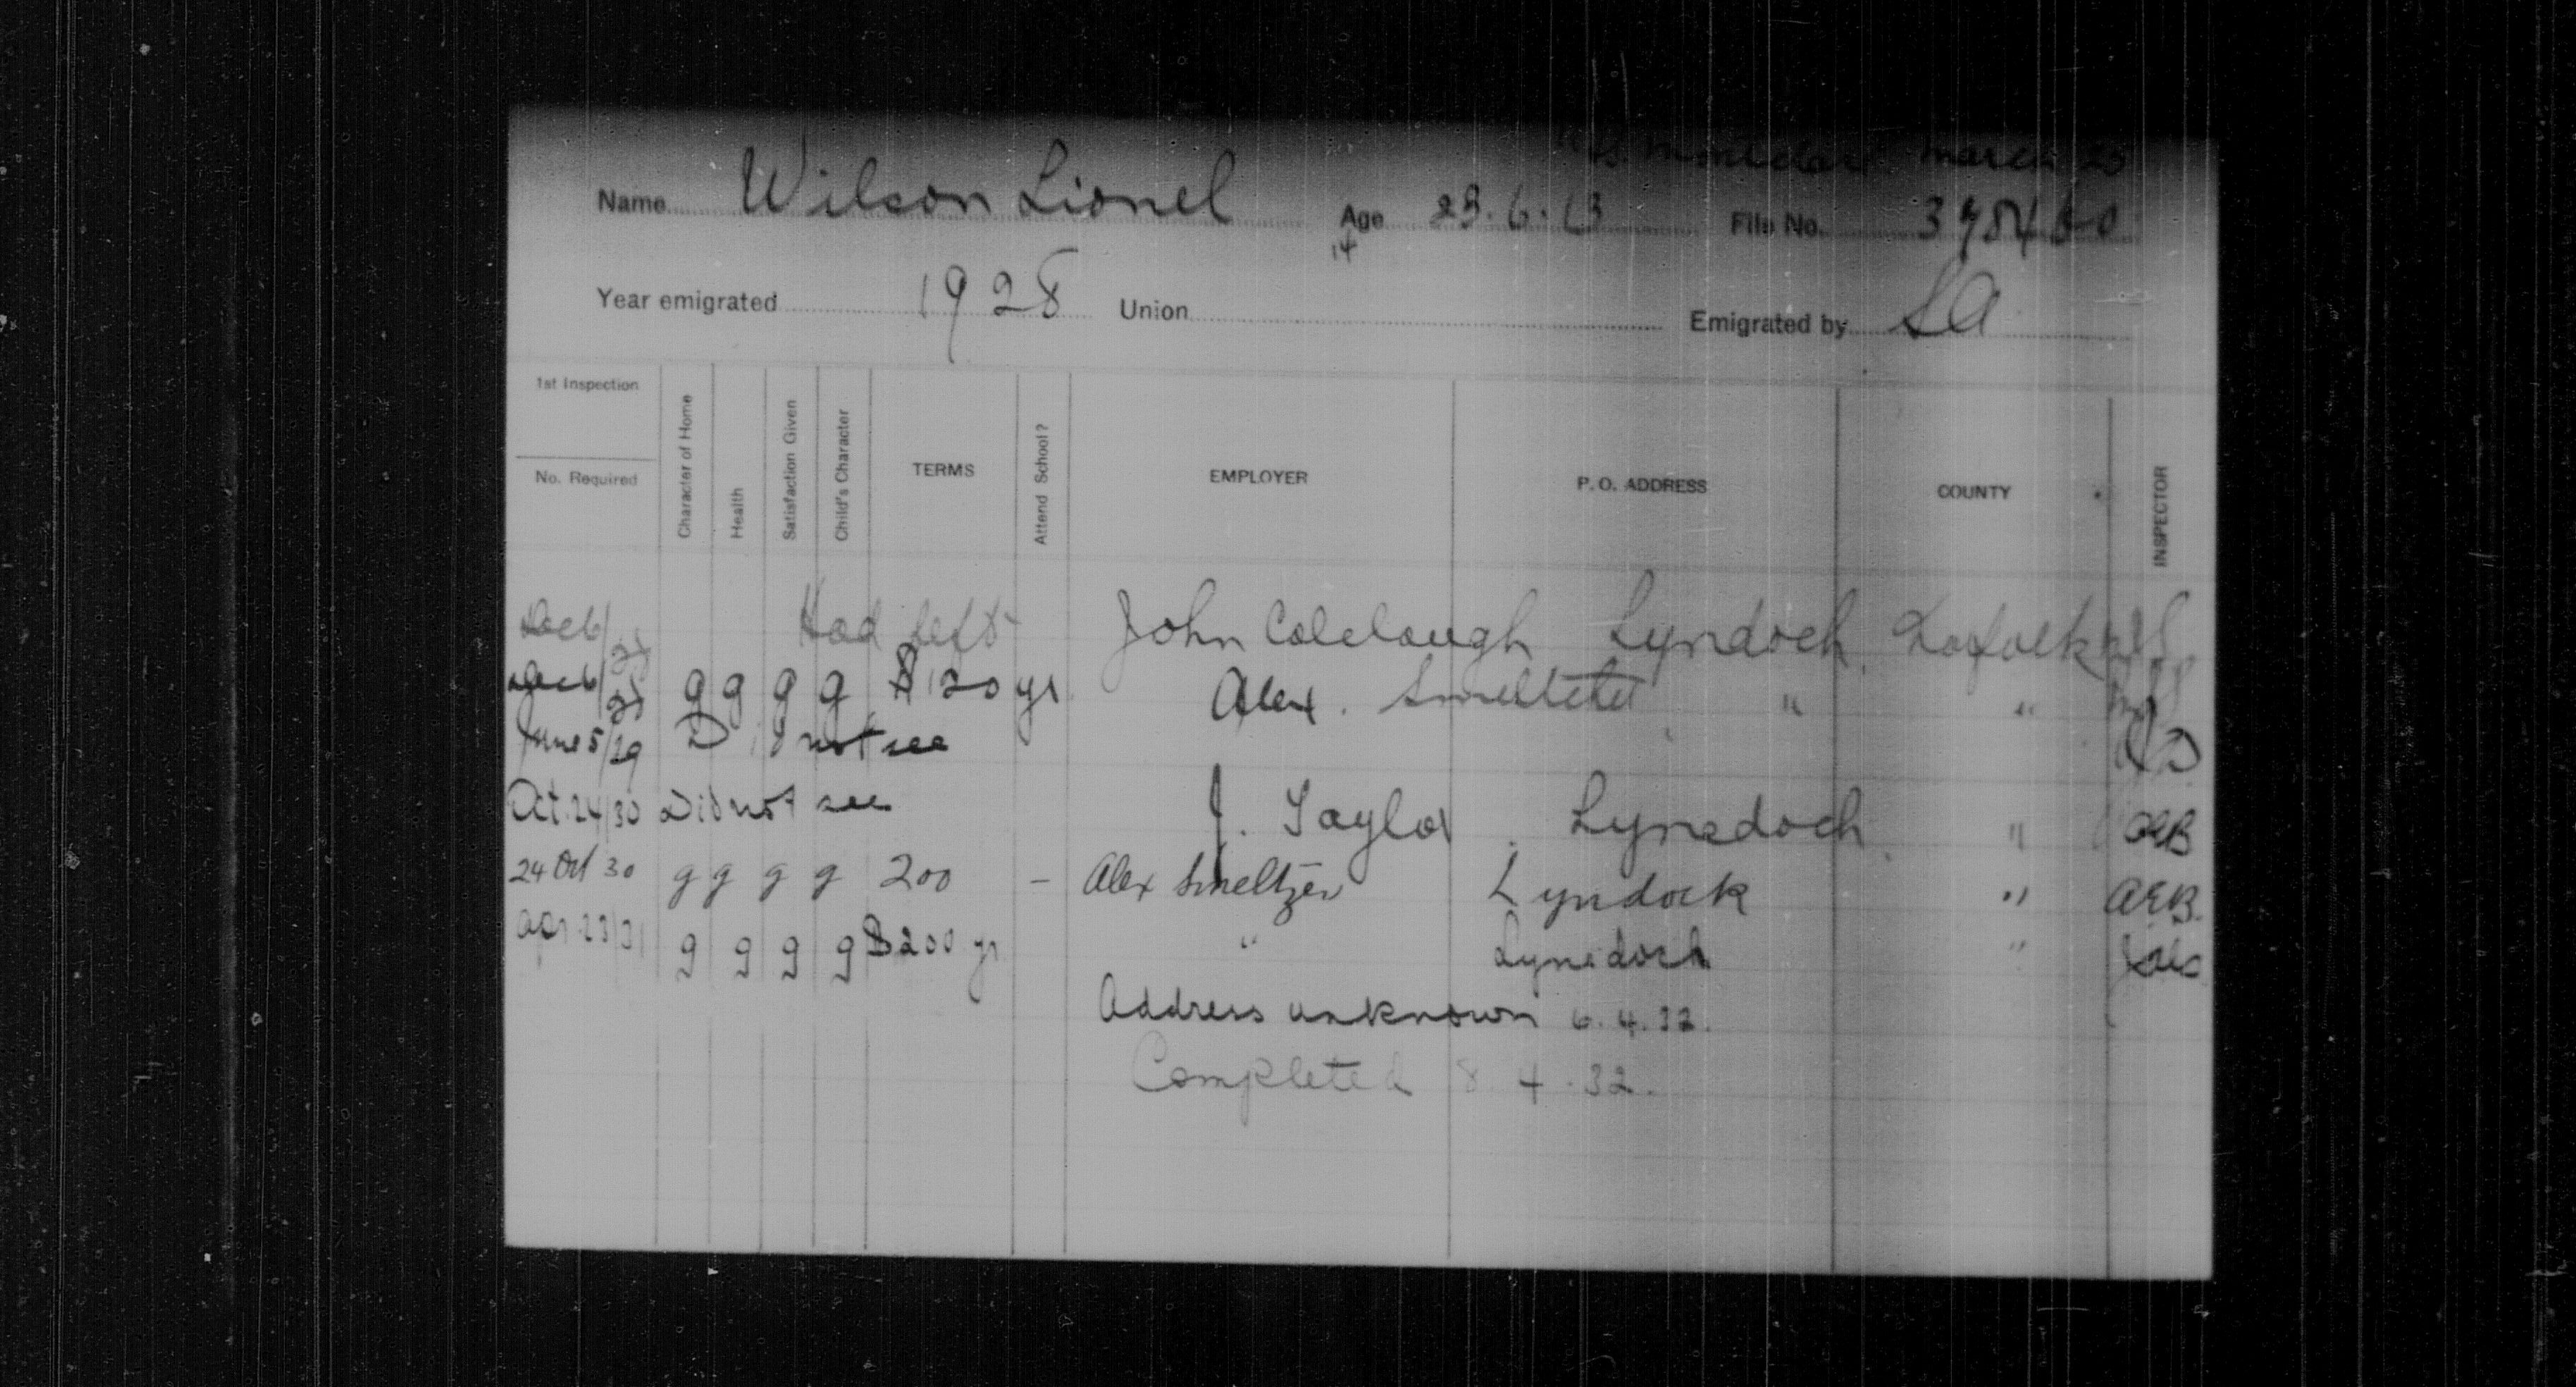 March
Name Wilson Lionel Age 23.6.13 File No.
14
Year emigrated 1928 Union Emigrated by SA
1st Inspection
No. Required
Character of Home
Health
Satisfaction Given
Child's Character
TERMS
Attend School?
EMPLOYER
P. O. ADDRESS
COUNTY
INSPECTOR
Dec 6/28 Had left John Colclough Lyndoch Norfolk
Dec 6/28 g g g g $120 yr Alex. " "
June 5/29 Did not see
Oct. 24/30 Did not see J. Taylor Lynedoch " AEB
24 Oct 30 g g g g 200 – Alex Smeltzer Lyndock " AEB.
Apr. 23/31 g g g g $200 yr " Lynedoch "
Address unknown 6.4.32.
Completed 8.4.32.